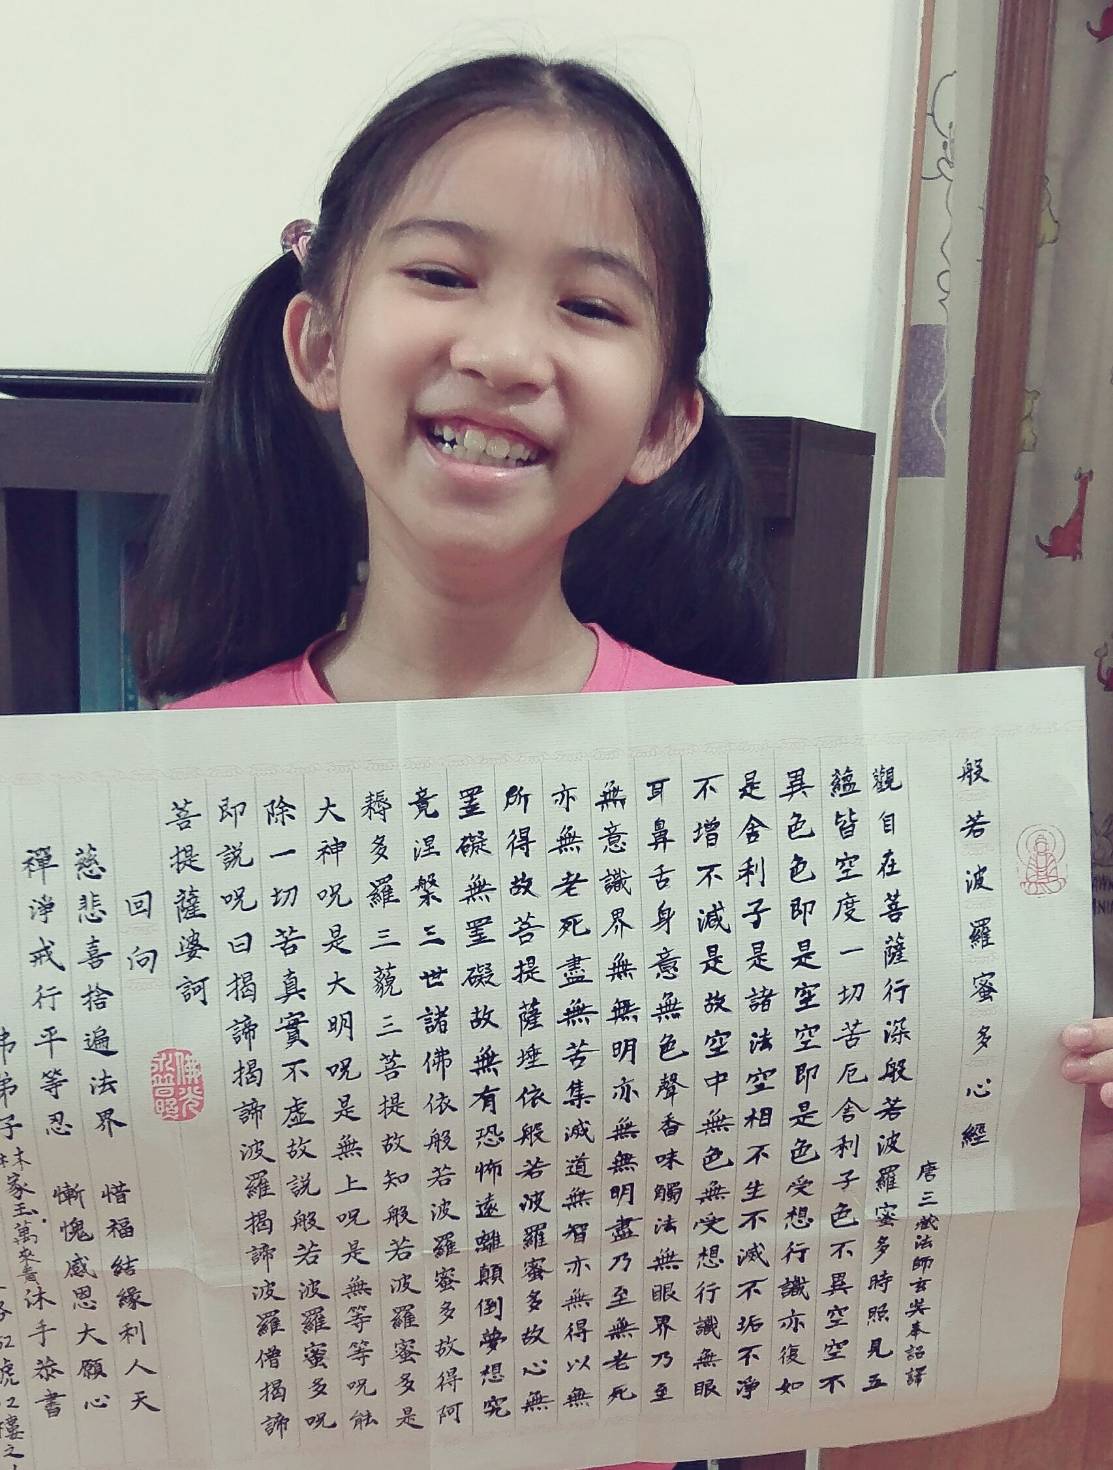 般若波羅蜜多心經
唐三藏法師玄奘奉詔譯
觀自在菩薩行深般若波羅蜜多時照見五
蘊皆空度一切苦厄舍利子色不異空空不
異色色即是空空即是色受想行識亦復如
是舍利子是諸法空相不生不滅不垢不淨
不增不減是故空中無色無受想行識無眼
耳鼻舌身意無色聲香味觸法無眼界乃至
無意識界無無明亦無無明盡乃至無老死
亦無老死盡無苦集滅道無智亦無得以無
所得故菩提薩埵依般若波羅蜜多故心無
罣礙無罣礙故無有恐怖遠離顛倒夢想究
竟涅槃三世諸佛依般若波羅蜜多故得阿
耨多羅三藐三菩提故知般若波羅蜜多是
大神呪是大明呪是無上呪是無等等呪能
除一切苦真實不虛故說般若波羅蜜多呪
即說呪曰揭諦揭諦波羅揭諦波羅僧揭諦
菩提薩婆訶
回向
慈悲喜捨遍法界 惜福結緣利人天
禪淨戒行平等忍 慚愧感恩大願心
弟子 沐手恭書